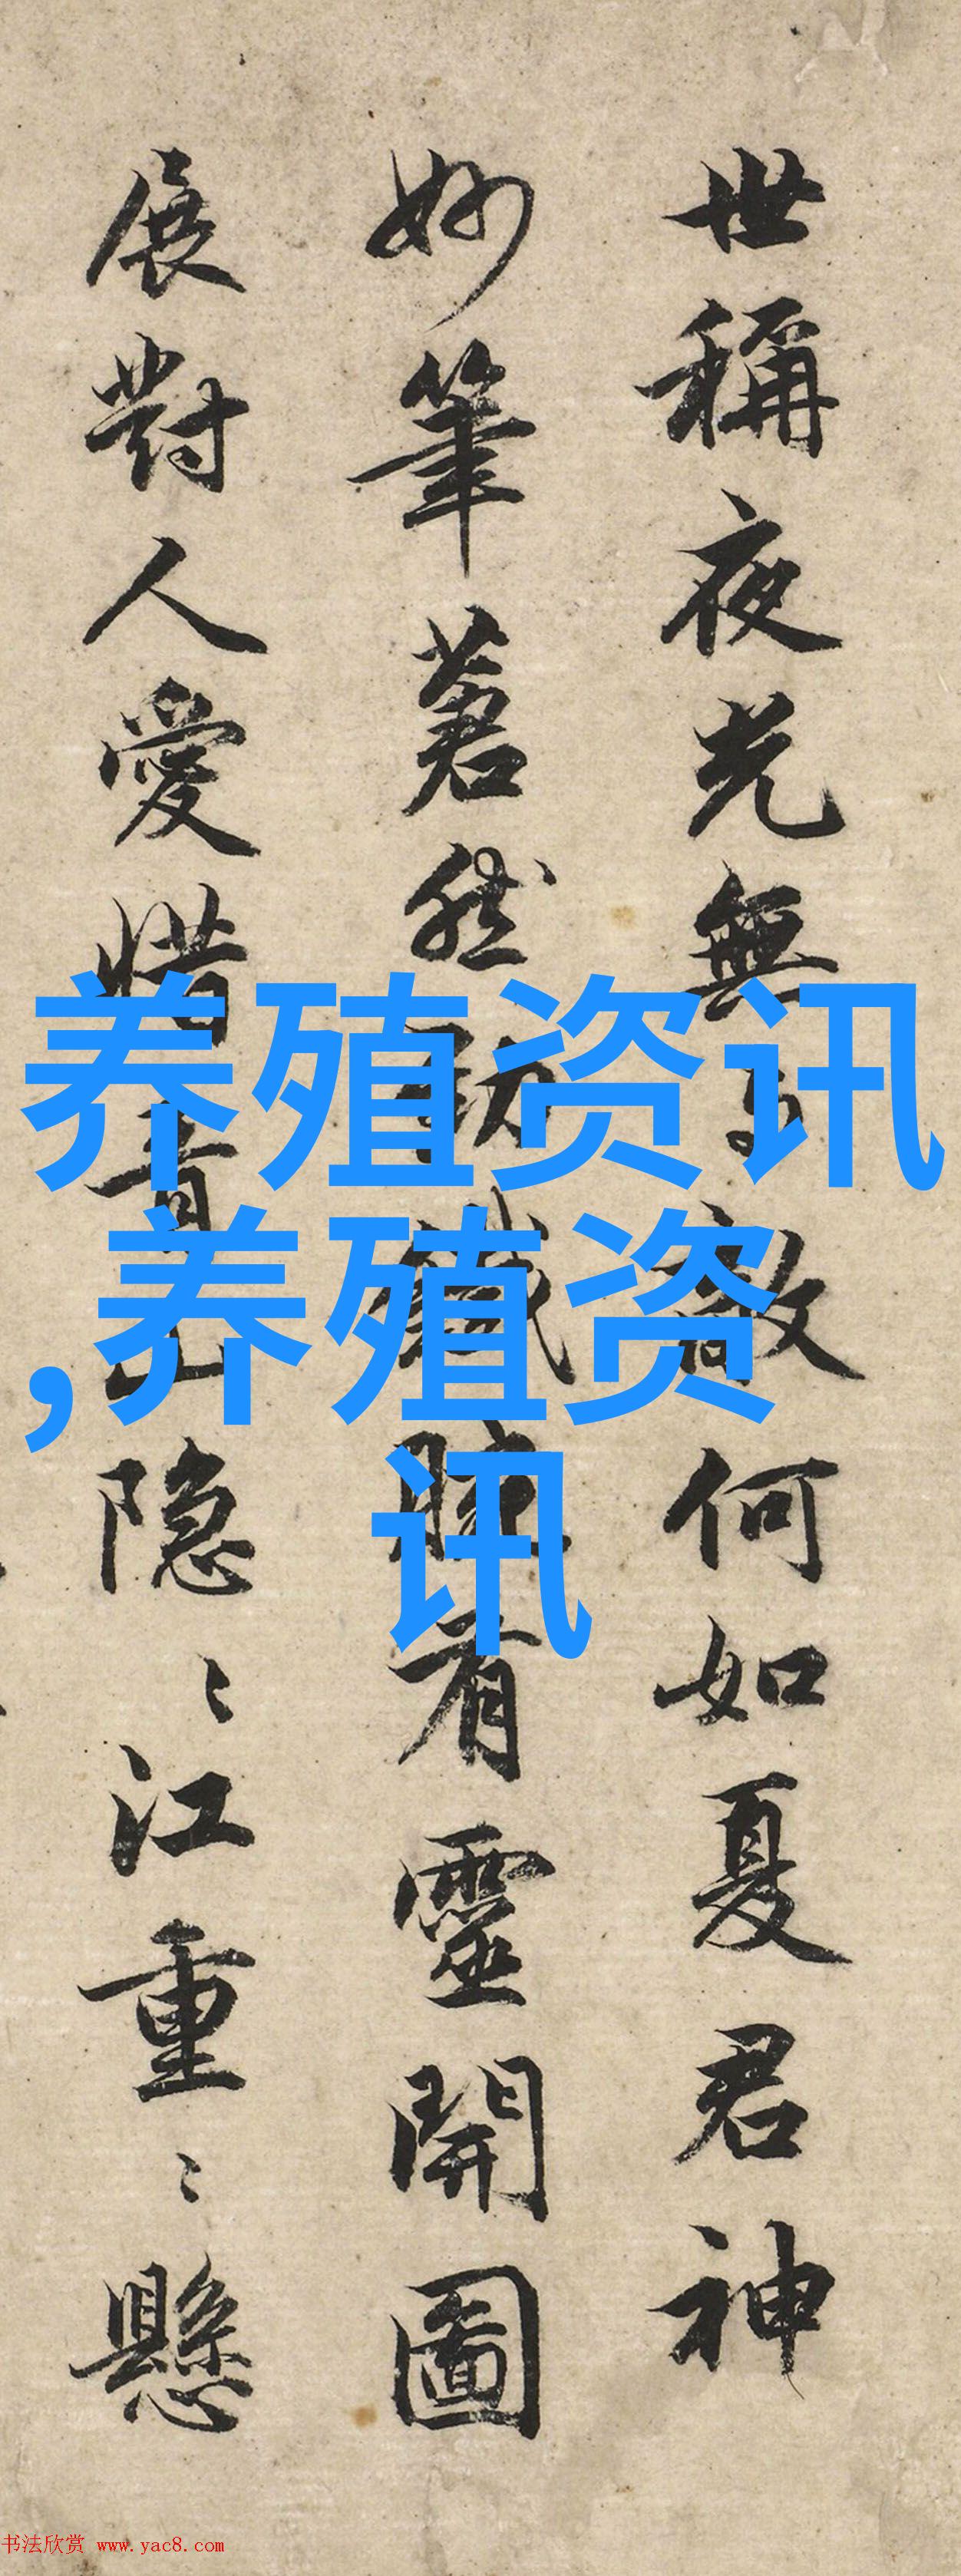 世稱夜光無敵何如夏君神
妙筆著然纖看靈開圖
展對人愛惜青山隐〻江重〻懸
养殖资讯
,养殖资
讯
书法欣赏 www.yac8.com